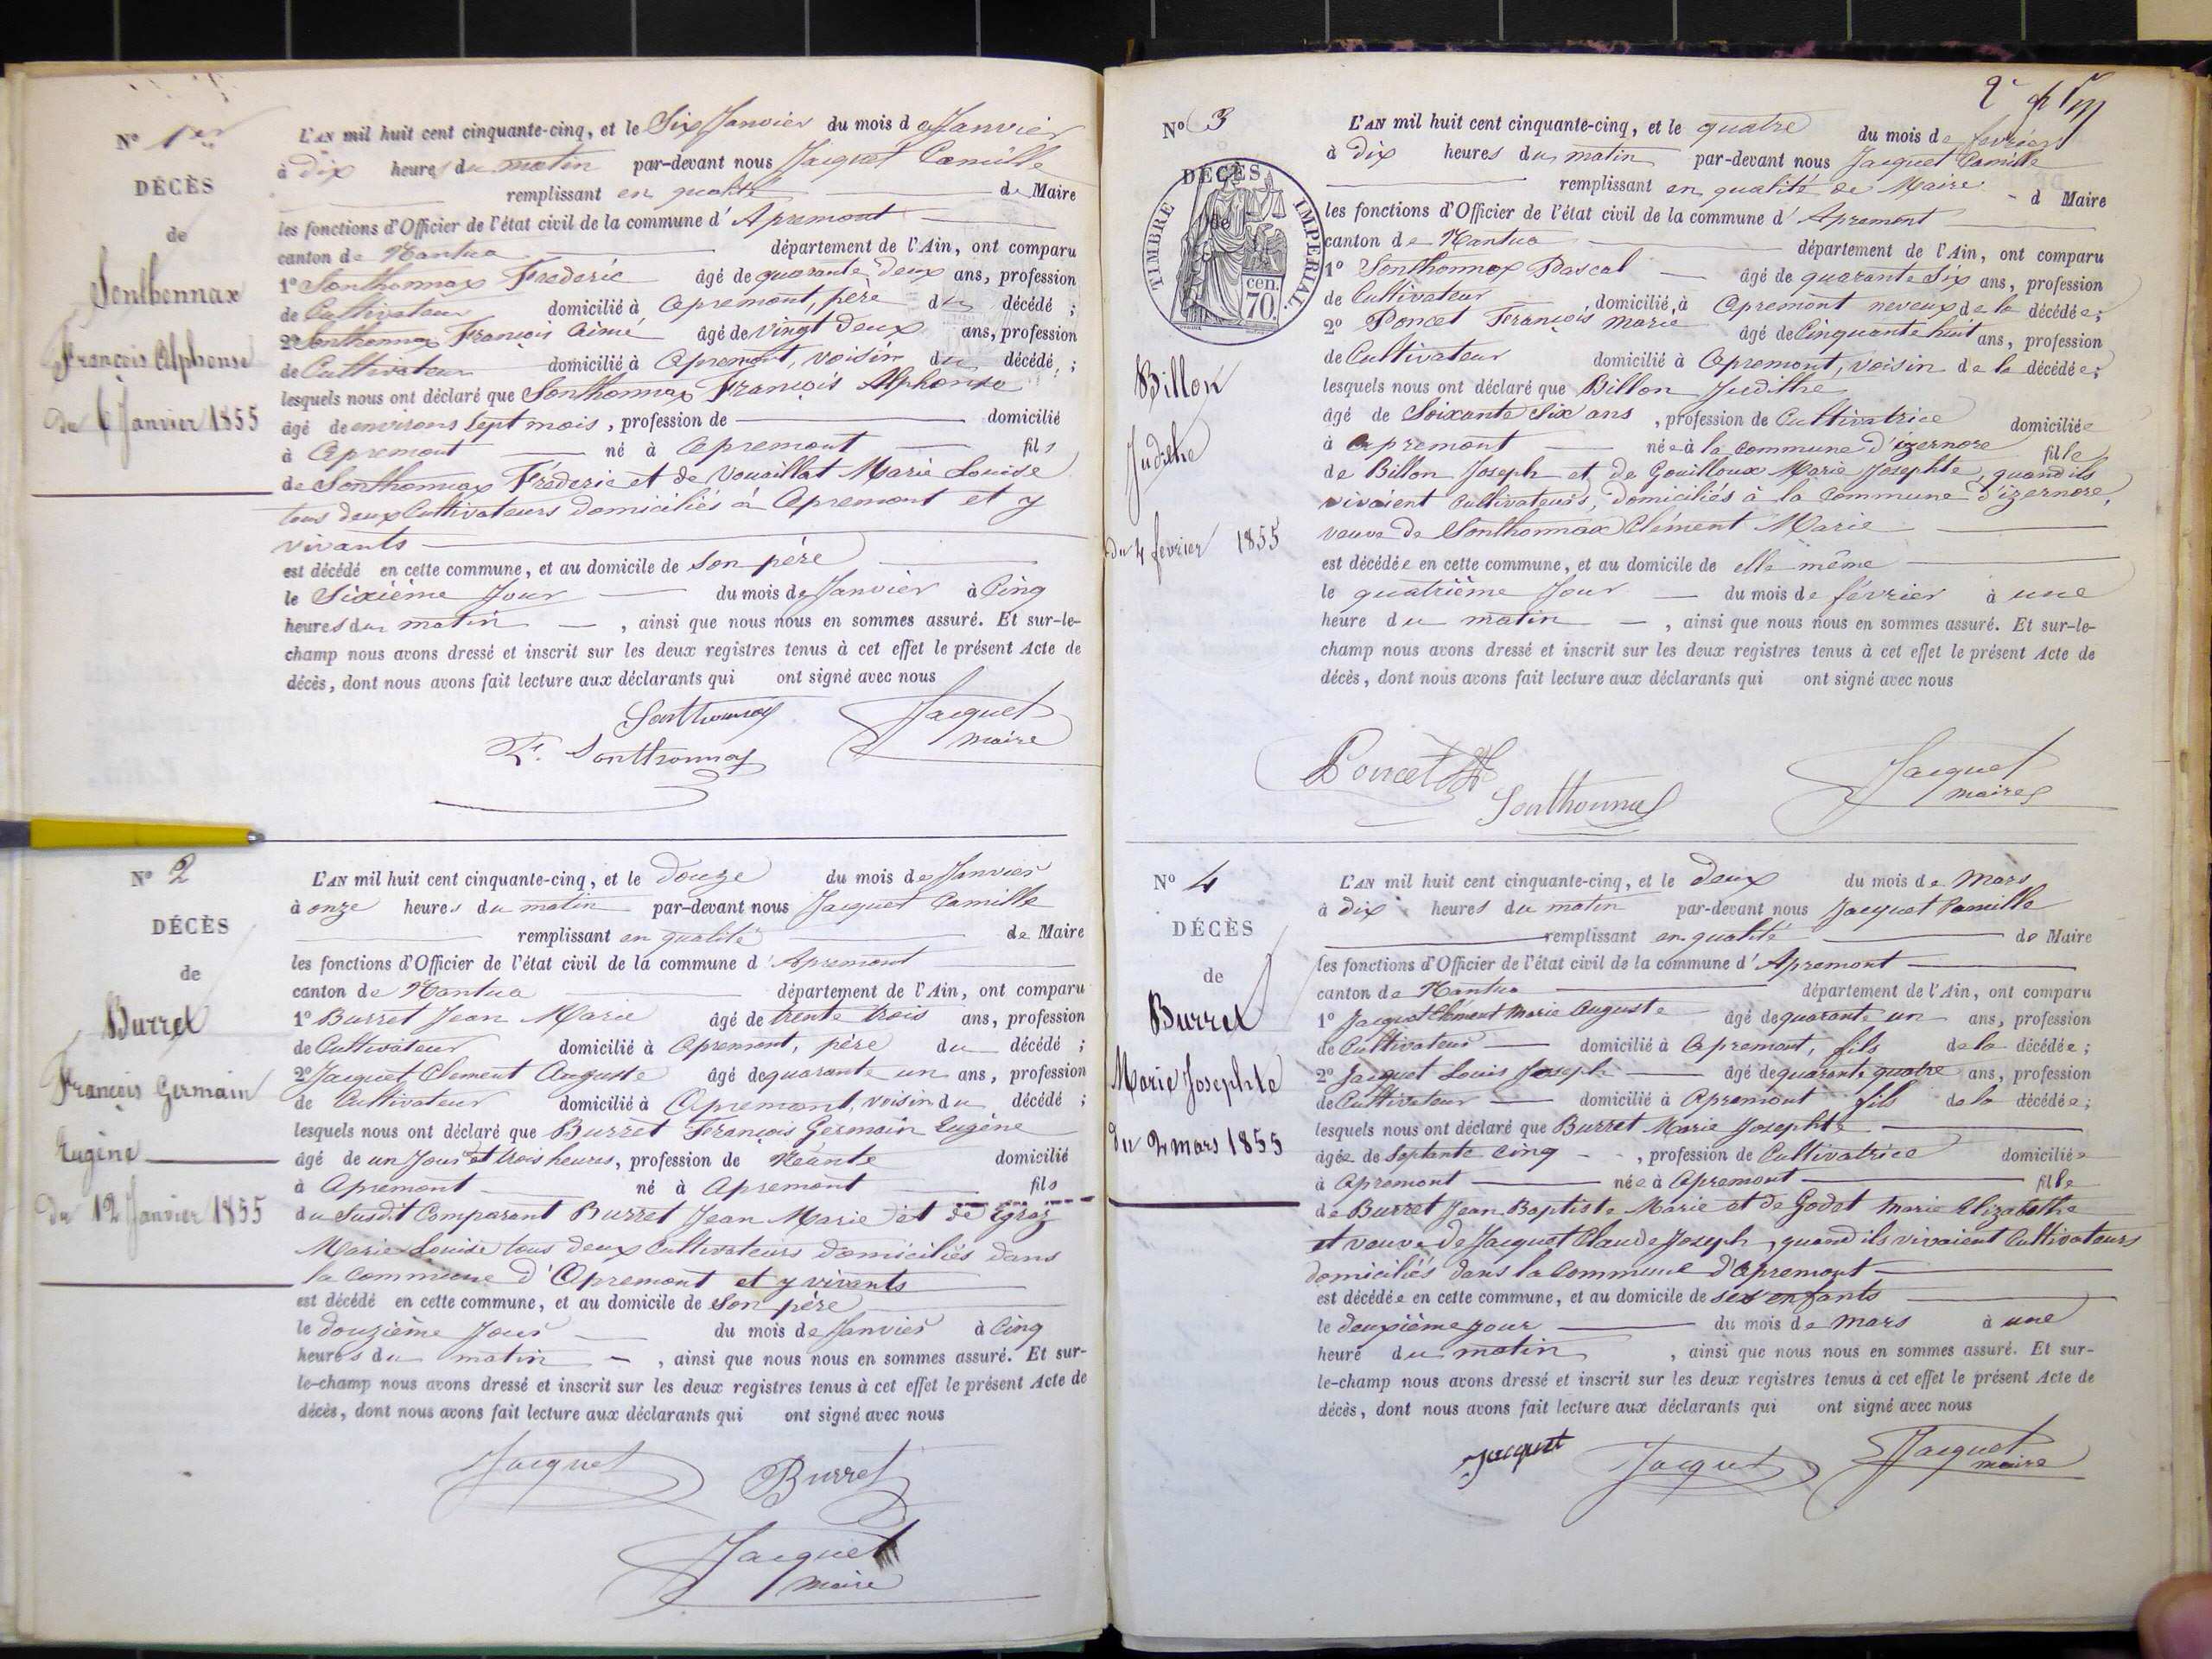 N° 1er
DÉCÈS
de
Sonthonnax
François Alphonse
du 6 Janvier 1855
L'AN mil huit cent cinquante-cinq, et le Six Janvier du mois de Janvier
à dix heures du matin par-devant nous Jacquet Camille
remplissant en qualité de Maire
les fonctions d'Officier de l'état civil de la commune d'Apremont
canton de Nantua département de l'Ain, ont comparu
1° Sonthonnax Frederic âgé de quarante deux ans, profession
de Cultivateur domicilié à Apremont, père du décédé ;
2° Sonthonnax François Aimé âgé de vingt deux ans, profession
de Cultivateur domicilié à Apremont, voisin du décédé ;
lesquels nous ont déclaré que Sonthonnax François Alphonse
âgé de environs Sept mois, profession de domicilié
à Apremont né à Apremont fils
de Sonthonnax Fréderic et de Vouaillat Marie Louise
tous deux Cultivateurs domiciliés à Apremont et y
vivants
est décédé en cette commune, et au domicile de son père
le Sixième Jour du mois de Janvier à Cinq
heures du matin, ainsi que nous nous en sommes assuré. Et sur-le-
champ nous avons dressé et inscrit sur les deux registres tenus à cet effet le présent Acte de
décès, dont nous avons fait lecture aux déclarants qui ont signé avec nous
Sonthonnax Jacquet
F. Sonthonnax maire
N° 2
DÉCÈS
de
Burret
François Germain
Eugène
du 12 Janvier 1855
L'AN mil huit cent cinquante-cinq, et le douze du mois de Janvier
à onze heures du matin par-devant nous Jacquet Camille
remplissant en qualité de Maire
les fonctions d'Officier de l'état civil de la commune d'Apremont
canton de Nantua département de l'Ain, ont comparu
1° Burret Jean Marie âgé de trente trois ans, profession
de Cultivateur domicilié à Apremont, père du décédé ;
2° Jacquet Clement Auguste âgé de quarante un ans, profession
de Cultivateur domicilié à Apremont, voisin du décédé ;
lesquels nous ont déclaré que Burret François Germain Eugène
âgé de un Jour et trois heures, profession de Néante domicilié
à Apremont né à Apremont fils
du Susdit Comparant Burret Jean Marie et de Egraz
Marie Louise tous deux Cultivateurs domiciliés dans
la Commune d'Apremont et y vivants
est décédé en cette commune, et au domicile de Son père
le douzième Jour du mois de Janvier à Cinq
heures du matin, ainsi que nous nous en sommes assuré. Et sur-
le-champ nous avons dressé et inscrit sur les deux registres tenus à cet effet le présent Acte de
décès, dont nous avons fait lecture aux déclarants qui ont signé avec nous
Jacquet Burret
Jacquet
maire
N° 3
DÉCÈS
de
TIMBRE IMPERIAL.
cen.
70.
Billon
Judithe
du 4 fevrier 1855
L'AN mil huit cent cinquante-cinq, et le quatre du mois de fevrier
à dix heures du matin par-devant nous Jacquet Camille
remplissant en qualité de Maire d Maire
les fonctions d'Officier de l'état civil de la commune d'Apremont
canton de Nantua département de l'Ain, ont comparu
1° Sonthonnax Pascal âgé de quarante Six ans, profession
de Cultivateur domicilié à Apremont neveux de la décédée ;
2° Poncet François Marie âgé de Cinquante huit ans, profession
de Cultivateur domicilié à Apremont, voisin de la décédée ;
lesquels nous ont déclaré que Billon Judithe
âgé de Soixante Six ans, profession de Cultivatrice domiciliée
à Apremont née à la commune d'izernore fille
de Billon Joseph et de Gouilloux Marie Josephte, quand ils
vivaient Cultivateurs, domiciliés à la Commune d'izernore,
veuve de Sonthonnax Clément Marie
est décédée en cette commune, et au domicile de elle même
le quatrième Jour du mois de février à une
heure du matin, ainsi que nous nous en sommes assuré. Et sur-le-
champ nous avons dressé et inscrit sur les deux registres tenus à cet effet le présent Acte de
décès, dont nous avons fait lecture aux déclarants qui ont signé avec nous
Poncet Jacquet
Sonthonnax maire
N° 4
DÉCÈS
de
Burret
Marie Josephte
du 2 mars 1855
L'AN mil huit cent cinquante-cinq, et le deux du mois de Mars
à dix heures du matin par-devant nous Jacquet Camille
remplissant en qualité de Maire
les fonctions d'Officier de l'état civil de la commune d'Apremont
canton de Nantua département de l'Ain, ont comparu
1° Jacquet Clément Marie Auguste âgé de quarante un ans, profession
de Cultivateur domicilié à Apremont, fils de la décédée ;
2° Jacquet Louis Joseph âgé de quarante quatre ans, profession
de Cultivateur domicilié à Apremont fils de la décédée ;
lesquels nous ont déclaré que Burret Marie Josephte
âgée de Septante Cinq, profession de Cultivatrice domiciliée
à Apremont née à Apremont fille
de Burret Jean Baptiste Marie et de Godet Marie Elizabethe
et veuve de Jacquet Claude Joseph, quand ils vivaient Cultivateurs
domiciliés dans la Commune d'Apremont
est décédée en cette commune, et au domicile de ses enfants
le deuxième jour du mois de Mars à une
heure du matin, ainsi que nous nous en sommes assuré. Et sur-
le-champ nous avons dressé et inscrit sur les deux registres tenus à cet effet le présent Acte de
décès, dont nous avons fait lecture aux déclarants qui ont signé avec nous
Jacquet Jacquet Jacquet
maire